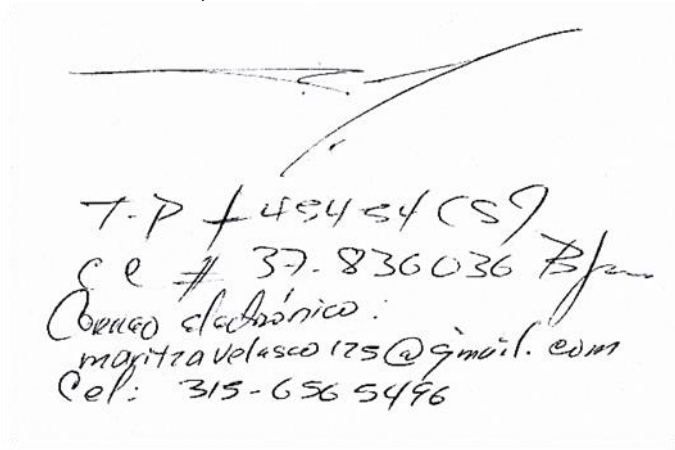 T-P # 45454 CSJ
CC # 37.836036 B/ga
Correo electrónico:
maritzavelasco125@gmail.com
Cel: 315-656 5496